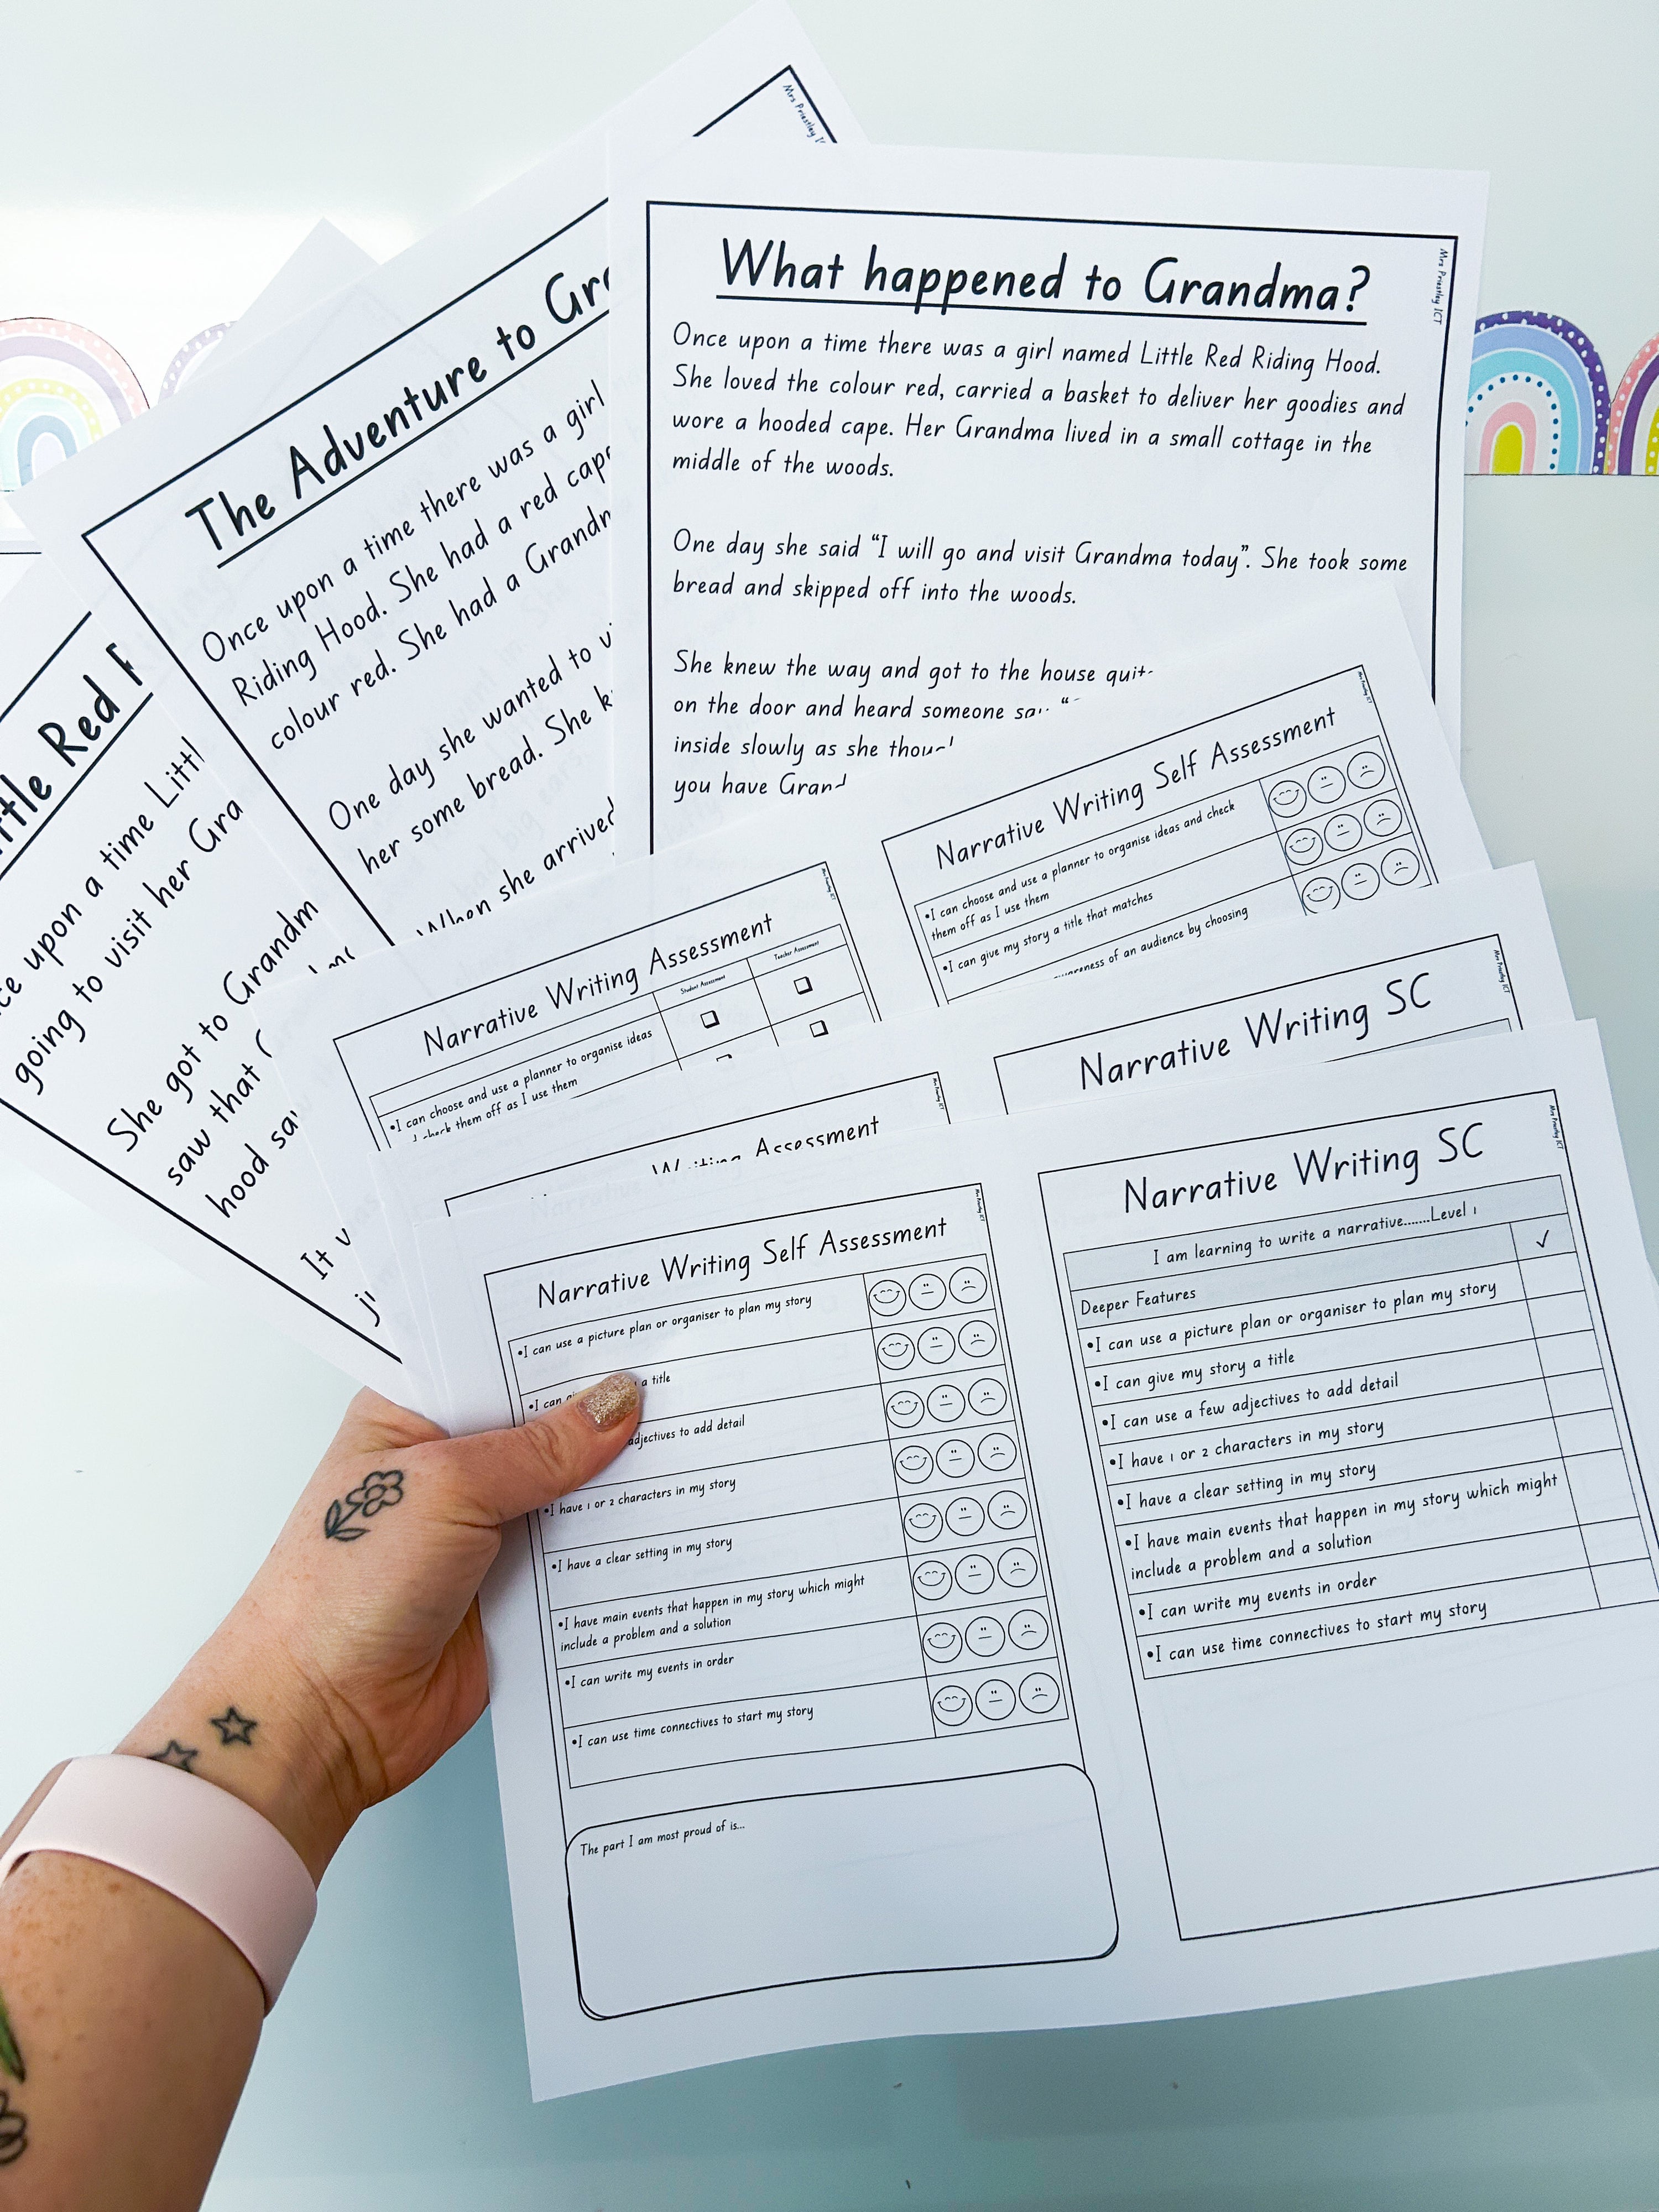 Mrs Priestley
What happened to Grandma?
Mrs Priestley ICT
Once upon a time there was a girl named Little Red Riding Hood.
She loved the colour red, carried a basket to deliver her goodies and
wore a hooded cape. Her Grandma lived in a small cottage in the
middle of the woods.
One day she said “I will go and visit Grandma today”. She took some
bread and skipped off into the woods.
She knew the way and got to the house
on the door and heard someone
inside slowly as she
you have
The Adventure to
Once upon a time there was a girl
Riding Hood. She had a red
colour red. She had a
One day she wanted to
her some bread. She
When she arrived
Red
upon a time
going to visit her
She got to
saw that
hood
It
Narrative Writing Self Assessment
•I can choose and use a planner to organise ideas and check
them off as I use them
•I can give my story a title that matches
of an audience by choosing
Narrative Writing Assessment
Student Assessment
Teacher Assessment
•I can choose and use a planner to organise ideas
check them off as I use them
Narrative Writing SC
Writing Assessment
Narrative Writing Self Assessment
Mrs Priestley ICT
•I can use a picture plan or organiser to plan my story
•I can a title
adjectives to add detail
•I have 1 or 2 characters in my story
•I have a clear setting in my story
•I have main events that happen in my story which might
include a problem and a solution
•I can write my events in order
•I can use time connectives to start my story
The part I am most proud of is...
Narrative Writing SC
Mrs Priestley ICT
I am learning to write a narrative.......Level 1
Deeper Features ✓
•I can use a picture plan or organiser to plan my story
•I can give my story a title
•I can use a few adjectives to add detail
•I have 1 or 2 characters in my story
•I have a clear setting in my story
•I have main events that happen in my story which might
include a problem and a solution
•I can write my events in order
•I can use time connectives to start my story